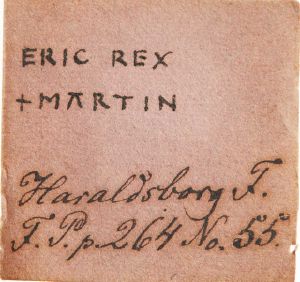 ERIC REX
+MARTIN
Haraldsborg F.
F. P. p. 264 No. 55.